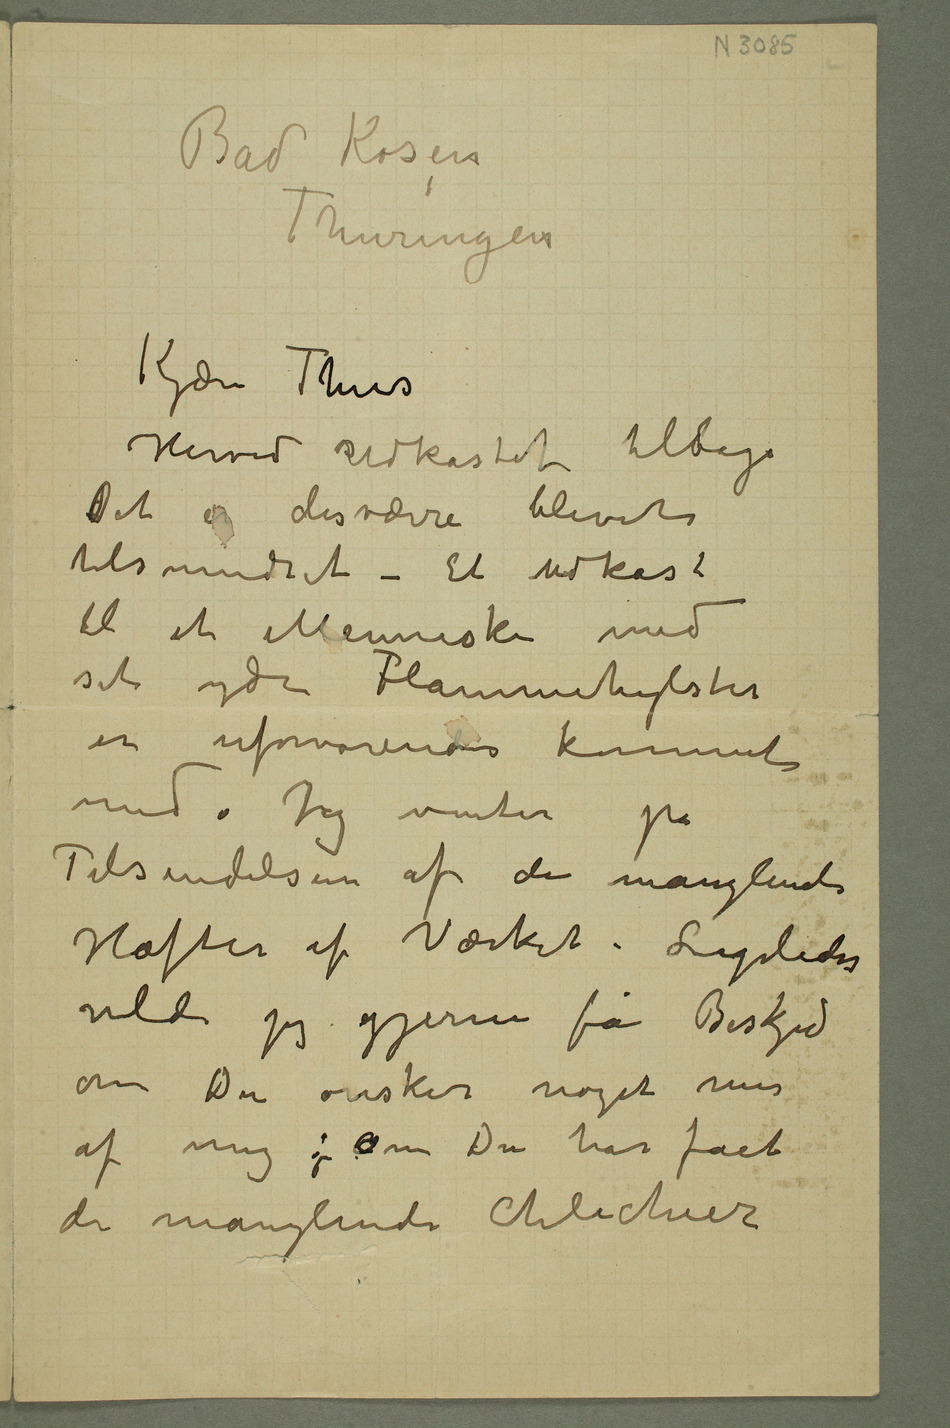 N 3085
Bad Kosen
Thuringen
Kjære Thiis
Herved Udkastet tilbage
Det er desværre blevet
tilsmudset – Et Udkast
til et Menneske med
sit ydre Flammehylster
er uforvarendes kommet
med. Jeg venter på
Tilsendelsen af de manglende
Hæfter af Værket. Ligeledes
vilde jeg gjerne få Beskjed
om Du ønsker noget mer
af mig ; Om Du har fået
de manglende Chlichier